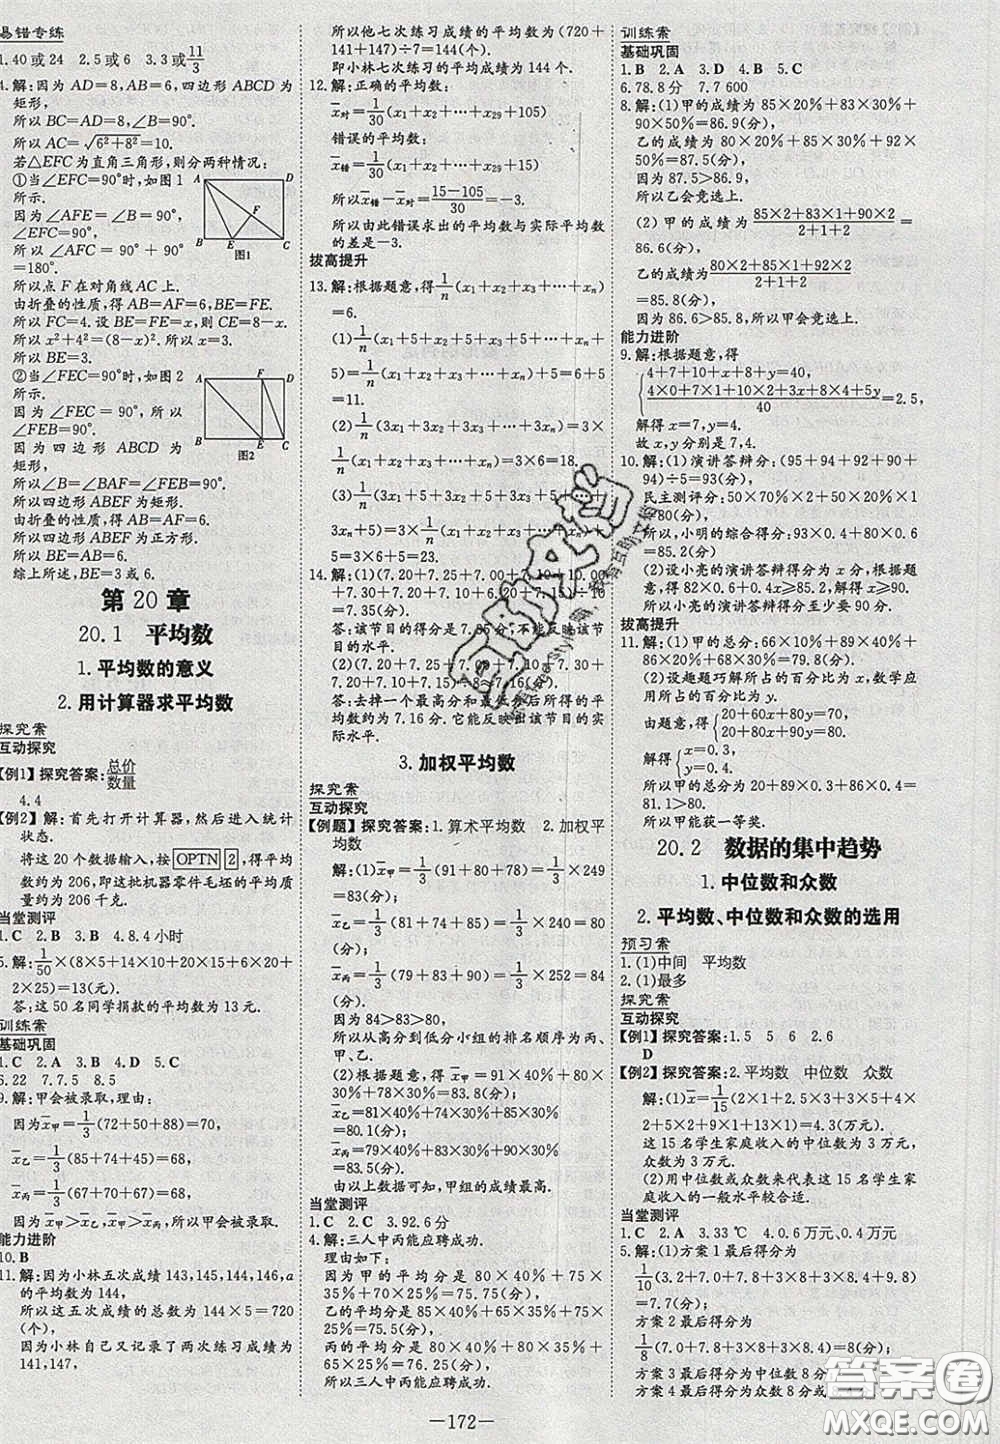 易错专练
1.40或24 2.5或6 3.3或11/3
4.解:因为AD=8,AB=6,四边形ABCD为
矩形,
所以BC=AD=8,∠B=90°.
所以AC=√(6²+8²)=10.
若△EFC为直角三角形,则分两种情况:
①当∠EFC=90°时,如图1
所示.
因为∠AFE=∠B=90°,
∠EFC=90°,
所以∠AFC=90°+90°
=180°.
所以点F在对角线AC上.
由折叠的性质,得AB=AF=6,BE=FE.
所以FC=4.设BE=FE=x,则CE=8-x.
所以x²+4²=(8-x)².解得x=3.
所以BE=3.
②当∠FEC=90°时,如图2
所示.
因为∠FEC=90°,所以
∠FEB=90°.
因为四边形ABCD为
矩形,
所以∠B=∠BAF=∠FEB=90°.
所以四边形ABEF为矩形.
由折叠的性质,得AB=AF.
所以四边形ABEF为正方形.
所以BE=AB=6.
综上所述,BE=3或6.
A D F B E C 图1
A F D B E C 图2
第20章
20.1 平均数
1.平均数的意义
2.用计算器求平均数
探究案
互动探究
【例1】探究答案:总价/数量
4.4
【例2】解:首先打开计算器,然后进入统计
状态.
将这20个数据输入,按OPTN 2,得平
均数约为206,即这批机器零件毛坯的平均
质量约为206千克.
当堂测评
1.C 2.B 3.B 4.8.4小时
5.解:1/50×(8×5+14×10+20×15+6×20+
2×25)=13(元).
答:这50名同学捐款的平均数为13元.
训练案
基础巩固
1.C 2.A 3.B 4.D 5.C
6.22 7.7.5 8.5
9.解:甲会被录取.理由:
因为x̄甲=1/3(72+50+88)=70,
x̄乙=1/3(85+74+45)=68,
x̄丙=1/3(67+70+67)=68,
因为x̄甲>x̄乙,x̄甲>x̄丙,所以甲会被录取.
能力进阶
10.B
11.解:因为小林五次成绩143,145,144,146,a
的平均数为144,
所以这五次成绩的总数为144×5=720
(个),
因为小林自己又记录了两次练习成绩为
141,147,
所以他七次练习成绩的平均数为(720+
141+147)÷7=144(个).
即小林七次练习的平均成绩为144个.
12.解:正确的平均数:
x̄对=1/30(x₁+x₂+⋯+x₂₉+105)
错误的平均数:
x̄错=1/30(x₁+x₂+⋯+x₂₉+15)
所以x̄错-x̄对=(15-105)/30=-3.
所以由此错误求出的平均数与实际平均数
的差是-3.
拔高提升
13.解:根据题意,得1/n(x₁+x₂+⋯+xₙ)
=6.
(1)1/n(x₁+5+x₂+5+⋯+xₙ+
5)=1/n(x₁+x₂+⋯+xₙ)+5=6+5
=11.
(2)1/n(3x₁+3x₂+⋯+3xₙ)=3×
1/n(x₁+x₂+⋯+xₙ)=3×6=18.
(3)1/n(3x₁+5+3x₂+5+⋯+
3xₙ+5)=3×1/n(x₁+x₂+⋯+xₙ)+
5=3×6+5=23.
14.解:(1)(7.20+7.25+7.00+7.10+10.00
+7.30+7.20+7.10+6.20+7.15)÷10
=7.35(分).
答:该节目的得分是7.35分,不能反映该节
目的水平.
(2)(7.20+7.25+7.00+7.10+7.30+
7.20+7.10+7.15)÷8≈7.16(分).
答:去掉一个最高分和最低分后所得的平
均数约为7.16分.它能反映出该节目的实
际水平.
3.加权平均数
探究案
互动探究
【例题】探究答案:1.算术平均数 2.加权平
均数
解:(1)x̄甲=1/3(91+80+78)=1/3×249
=83(分);
x̄乙=1/3(81+74+85)=1/3×240=80
(分);
x̄丙=1/3(79+83+90)=1/3×252=84
(分).
因为84>83>80,
所以从高分到低分小组的排名顺序为丙、
甲、乙.
(2)根据题意,得x̄甲=91×40%+80×
30%+78×30%=83.8(分);
x̄乙=81×40%+74×30%+85×30%
=80.1(分);
x̄丙=79×40%+83×30%+90×30%
=83.5(分).
由以上数据可知,甲组的成绩最高.
当堂测评
1.C 2.C 3.92.6分
4.解:三人中丙能应聘成功.
理由如下:
因为甲的平均分是80×40%+75×
35%+70×25%=75.75(分),
乙的平均分是85×40%+64×35%+72
×25%=74.4(分),
丙的平均分是72×40%+88×35%+
65×25%=76.25(分),
所以三人中丙能应聘成功.
训练案
基础巩固
1.B 2.A 3.D 4.B 5.C
6.78.8分 7.7 600
8.解:(1)甲的成绩为85×20%+83×30%+
90×50%=86.9(分),
乙的成绩为80×20%+85×30%+92×
50%=87.5(分),
因为87.5>86.9,
所以乙会竞选上.
(2)甲的成绩为(85×2+83×1+90×2)/(2+1+2)=
86.6(分),
乙的成绩为(80×2+85×1+92×2)/(2+1+2)
=85.8(分),
因为86.6>85.8,所以甲会竞选上.
能力进阶
9.解:根据题意,得
{4+7+10+x+8+y+4=40,
(4×0+7×1+10×2+3x+8×4+5y)/40=2.5,
解得x=7,y=4.
故x,y分别是7,4.
10.解:(1)演讲答辩分:(95+94+92+90+
94)÷5=93(分),
民主测评分:50×70%×2+50×20%×1
=80(分),
所以小明的综合得分:93×0.4+80×0.6
=85.2(分).
(2)设小亮的演讲答辩得分为x分,根据题
意,得82×0.6+0.4x≥85.2,解得x≥90.
所以小亮的演讲答辩得分至少要90分.
拔高提升
11.解:(1)甲的总分:66×10%+89×40%+
86×20%+68×30%=79.8(分).
(2)设趣题巧解所占的百分比为x,数学应
用所占的百分比为y.
由题意,得{20+60x+80y=70,
20+80x+90y=80.
解得{x=0.3,
y=0.4.
所以甲的总分为20+89×0.3+86×0.4=
81.1(分).
所以甲能获一等奖.
20.2 数据的集中趋势
1.中位数和众数
2.平均数、中位数和众数的选用
预习案
1.(1)中间 平均数
2.(1)最多
探究案
互动探究
【例1】探究答案:1.5 5 6 2.6
D
【例2】探究答案:2.平均数 中位数 众数
解:(1)x̄=1/15(2×1+2.5×3+3×5+4×
2+5×2+9×1+13×1)=4.3(万元).
这15名学生家庭收入的中位数为3万元,
众数为3万元.
(2)用中位数或众数来代表这15名学生家
庭收入的一般水平较合适.
当堂测评
1.C 2.A 3.33℃ 4.0.6万元、0.4万元
5.解:(1)方案1最后得分为
1/10(3.2+7.0+7.8+3×8+3×8.4+9.8)
=7.7(分);
方案2最后得分为
1/8(7.0+7.8+3×8+3×8.4)=8(分);
方案3最后得分为中位数8分;
方案4最后得分为众数8分
答案圈
MXQE.COM
—172—